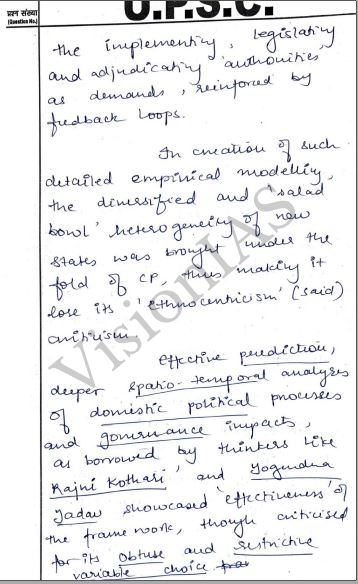 प्रश्न संख्या
(Question No.)
U.P.S.C.
the implementing, legislating
and adjudicating 'authorities'
as demands, reinforced by
feedback loops.
In creation of such
detailed empirical modelling,
the diversified and 'salad
bowl' heterogeneity of new
states was brought under the
fold of CP, thus making it
lose its 'ethnocentricism' (Said)
criticism.
Effective prediction,
deeper spatio-temporal analyses
of domestic political processes
and governance impacts,
as borrowed by thinkers like
Rajni Kothari and Yogendra
Yadav showcased 'effectiveness' of
the framework, though criticised
for its obtuse and restrictive
variable choice
VisionIAS